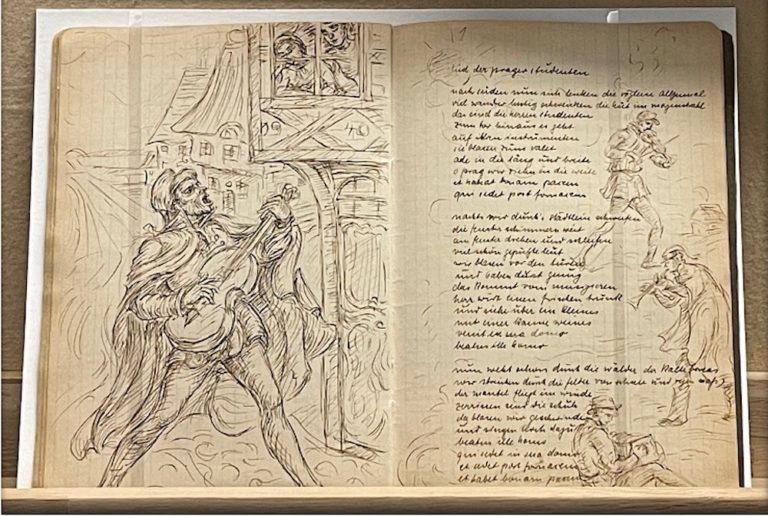 lied der prager studenten
nach süden nun sich lenken die vöglein allzumal
viel wander lustig schwenken die hüt im morgenstrahl
das sind die herren studenten
zum tor hinaus es geht
auf ihren instrumenten
sie blasen zum valet
ade in die läng und breite
o prag wir ziehn in die weite
et habeat bonam pacem
qui sedet post fornacem
nachts wir durchs städtlein schweifen
die fenster schimmern weit
am fenster drehen und schleifen
viel schön geputzte leut
wir blasen vor den türen
und haben durst genug
das kommt vom musizieren
herr wirt einen frischen trunk
und siehe über ein kleines
mit einer kanne weines
venit ex sua domo
beatus ille homo
nun weht schon durch die wälder der kalte boreas
wir streichen durch die felder von schnee und regen naß
der mantel fliegt im winde
zerrissen sind die schuh
da blasen wir geschwinde
und singen noch dazu
beatus ille homo
qui sedet in sua domo
et sedet post fornacem
et habet bonam pacem